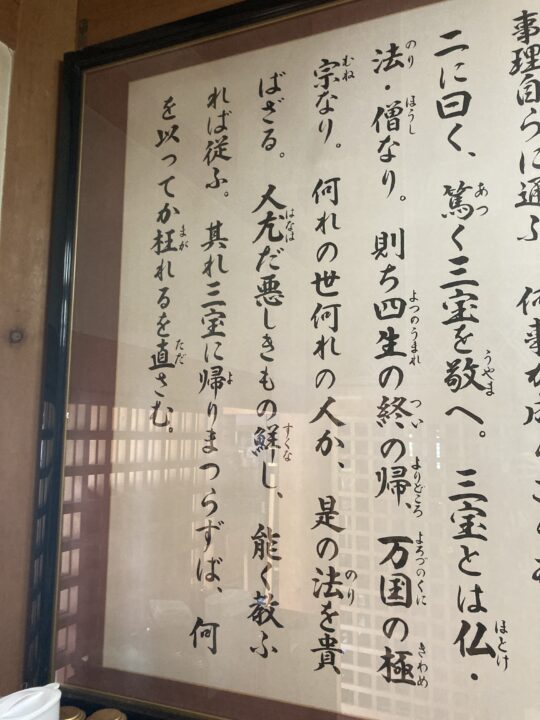 事理自らに通ふ 何事か成らざらむ
二に曰く、篤く三宝を敬へ。三宝とは仏・
法・僧なり。則ち四生の終の帰、万国の極
宗なり。何れの世何れの人か、是の法を貴
ばざる。人尤だ悪しきもの鮮し、能く教ふ
れば従ふ。其れ三宝に帰りまつらずば、何
を以ってか枉れるを直さむ。